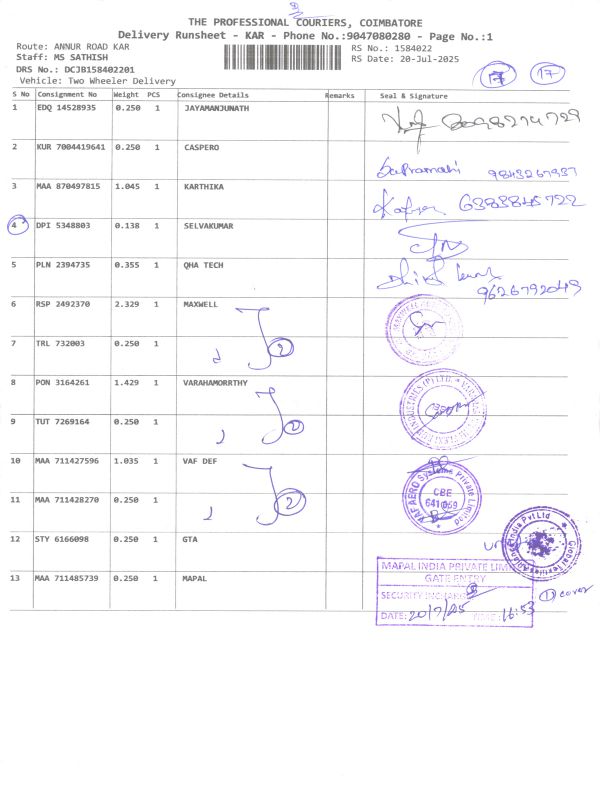 THE PROFESSIONAL COURIERS, COIMBATORE
Delivery Runsheet - KAR - Phone No.:9047080280 - Page No.:1
Route: ANNUR ROAD KAR
RS No.: 1584022
Staff: MS SATHISH
RS Date: 20-Jul-2025
DRS No.: DCJB158402201
Vehicle: Two Wheeler Delivery
17
S No Consignment No Weight PCS Consignee Details Remarks Seal & Signature
1 EDQ 14528935 0.250 1 JAYAMANJUNATH
2 KUR 7004419641 0.250 1 CASPERO
9843267937
3 MAA 870497815 1.045 1 KARTHIKA
6383845722
4 DPI 5348803 0.138 1 SELVAKUMAR
5 PLN 2394735 0.355 1 QHA TECH
9626792049
6 RSP 2492370 2.329 1 MAXWELL
7 TRL 732003 0.250 1
2
8 PON 3164261 1.429 1 VARAHAMORRTHY
9 TUT 7269164 0.250 1
2
10 MAA 711427596 1.035 1 VAF DEF
VAF AERO Systems Private Limited
CBE
641 059
11 MAA 711428270 0.250 1
2
12 STY 6166098 0.250 1 GTA
13 MAA 711485739 0.250 1 MAPAL
MAPAL INDIA PRIVATE
GATE ENTRY
SECURITY INCHARGE
DATE: 20/7/25 TIME: 16:53
1 cover